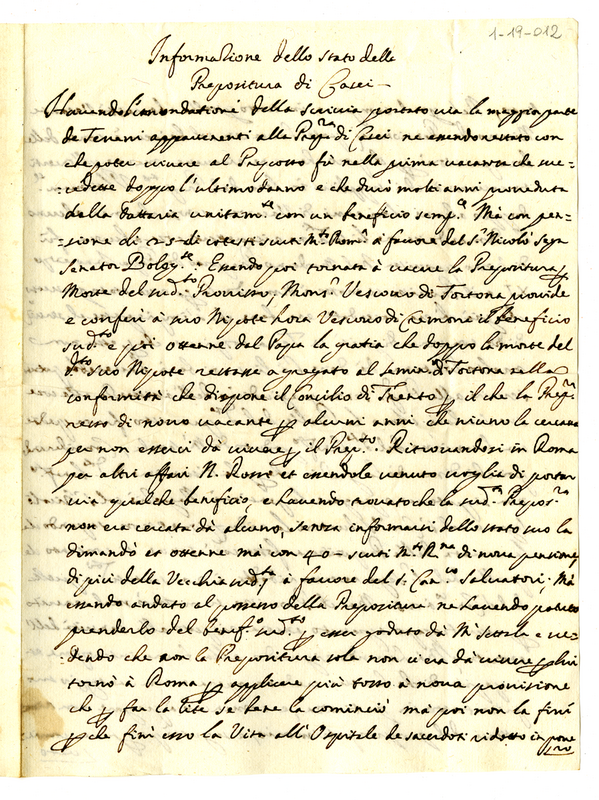 1-19-012
Informazione dello stato della
Prepositura di Casei
Havendo l'innondatione della scrivia portato via la maggior parte
de Terreni appartenenti alla Prepra di Casei ne essendo restato con
che poter vivere al Preposto fù nella prima vacanza che suc=
=cedesse doppo l'ultimo danno e che durò molti anni proveduta
della Dattaria unitamte con un beneficio sempe Mà con pen=
=sione di 25 di cotesti scuti Mta Roma à favore del Sr Nicolò
Senator Bolog Essendo poi tornata à vacare la Prepositura p
Morte del sudto Provisto, Monsr Vescovo di Tortona providde
e conferì à suo Nipote hora Vescovo di Cremona il Beneficio
sudto e poi ottenne dal Papa la gratia che doppo la morte del
dto suo Nipote restasse agregato al semino di Tortona nella
conformità che dispone il Concilio di Trento, il che la Prepra
restò di novo vacante p alcuni anni che niuno la cercava
per non esserci dà vivere p il Prepto. Ritrovandosi in Roma
per altri affari N. Rossi et essendole venuto voglia di portar
via qualche beneficio, e havendo trovato che la sudta Preposra
non era cercata dà alcuno, senza informarsi dello stato suo la
dimandò et ottenne mà con 40 scuti Mta Rna di nova pensione
di più della Vecchia sudta à favore del S. Canco Salvatori; Mà
essendo andato al possesso della Prepositura ne havendo potuto
prenderlo del benefo sudto p esser goduto dà N. Scorla e ve=
=dendo che con la Prepositura sola non vi era dà vivere p lui
tornò à Roma p applicare più tosto à nova provisione
che p far la lite se bene la cominciò mà poi non la finì
p che finì esso la Vita all' Ospitale de sacerdoti ridotto in pove